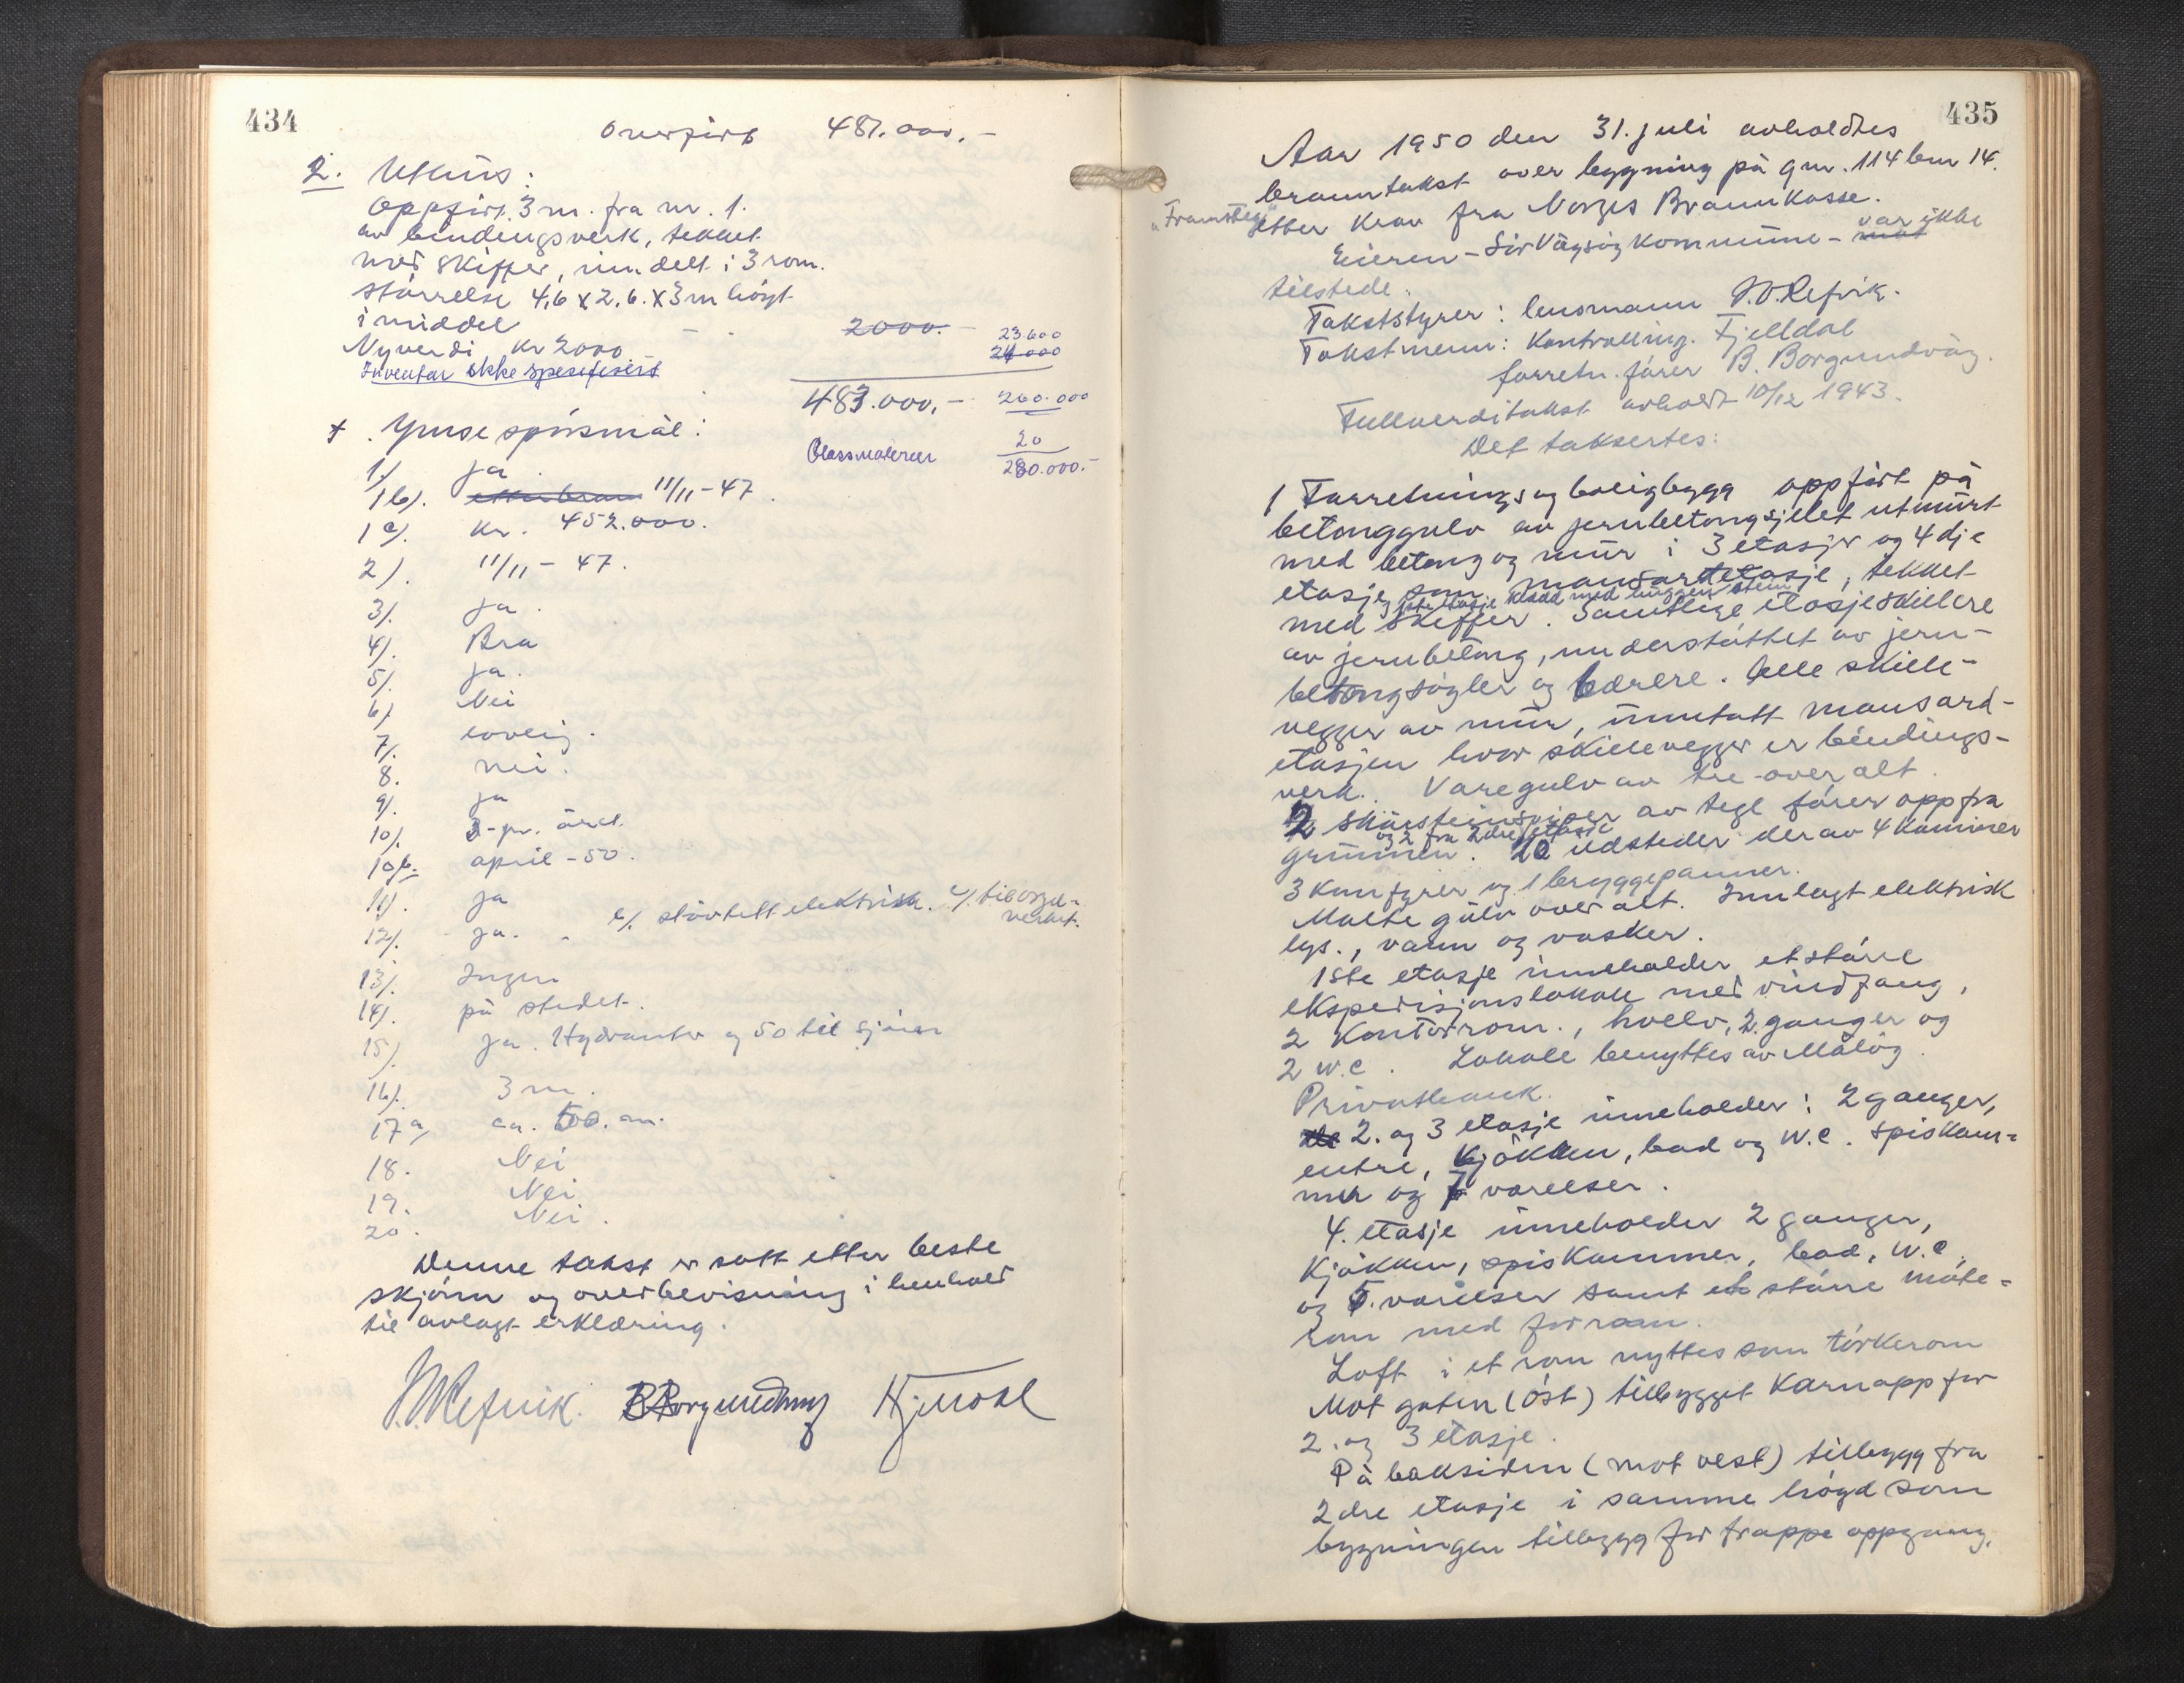 434
Overført 481.000,-
2. Uthus:
Oppført 3 m. fra nr. 1.
av bindingsverk, tekket
med skiffer, inndelt i 3 rom.
størrelse 4,6 x 2,6 x 3 m høgt
i middel
2000.-
23.600
Nyverdi kr 2000
24.000
Inventar ikke spesifisert
483.000,- 260.000
+ Ymse spörsmål:
Glassmalerier 20
280.000.-
1). ja
1b). 11/11-47.
1c). kr. 452.000.
2). 11/11 - 47.
3). ja.
4). Bra
5). ja.
6). Nei
7). lovlig.
8. nei.
9). ja
10). 3-pr. året.
10b. april - 50.
11). ja
12). ja. b/. støvtett elektrisk. c/. til orgel-
verket.
13). Ingen
14). på stedet.
15). ja. Hydranter og 50 til sjøen
16). 3 m.
17a) ca. 500. m.
18. Nei
19. Nei
20. Nei.
Denne takst er satt etter beste
skjønn og overbevisning i henhold
til avlagt erklæring.
J.O.Refvik. B Borgundvåg Fjelldal
435
Aar 1950 den 31. juli avholdtes
branntakst over bygning på gnr. 114 bnr 14.
"Framsteg"
etter krav fra Norges Brannkasse.
Eieren - Sør Vågsøy Kommune - møt var ikke
tilstede.
Takststyrer: lensmann J.O.Refvik.
Takstmenn: Kontrolling. Fjelldal
forretn. fører B. Borgundvåg.
Fullverditakst avholdt 10/12 1943.
Det taksertes:
1 Forretnings og boligbygg oppført på
betonggulv av jernbetongsjelet utmurt
med betong og mur i 3 etasjer og 4dje
etasje som mansardetasje, tekket
1ste etasje kledd med huggen stein
med skiffer. Samtlige etasjeskillere
av jernbetong, understøttet av jern-
betongsøyler og bærere. Alle skille-
vegger av mur, unntatt mansard-
etasjen hvor skillevegger er bindings-
verk. Varegulv av tre over alt.
2 skorsteinspiper av tegl fører opp fra
og 2 fra 2dre etasje
grunnen. 10 ildsteder derav 4 kaminer
3 komfyrer og 1 bryggepanner.
Malte gulv over alt. Innlagt elektrisk
lys., vann og vasker.
1ste etasje inneholder et større
ekspedisjonslokale med vindfang,
2 Kontorrom., hvelv, 2 ganger og
2 w.c. Lokale benyttes av Måløy
Privatbank.
2. og 3 etasje inneholder: 2 ganger,
entre, kjøkken, bad og w.c. spiskam-
mer og 7 værelser.
4. etasje inneholder 2 ganger,
Kjøkken, spiskammer, bad, w.c.
og 5. værelser samt et større møte-
rom med forrom.
Loft i et rom nyttes som tørkerom
Mot gaten (øst) tilbygget karnapp for
2. og 3 etasje.
På baksiden (mot vest) tilbygg fra
2dre etasje i samme høgd som
bygningen tilbygg for trappe oppgang.